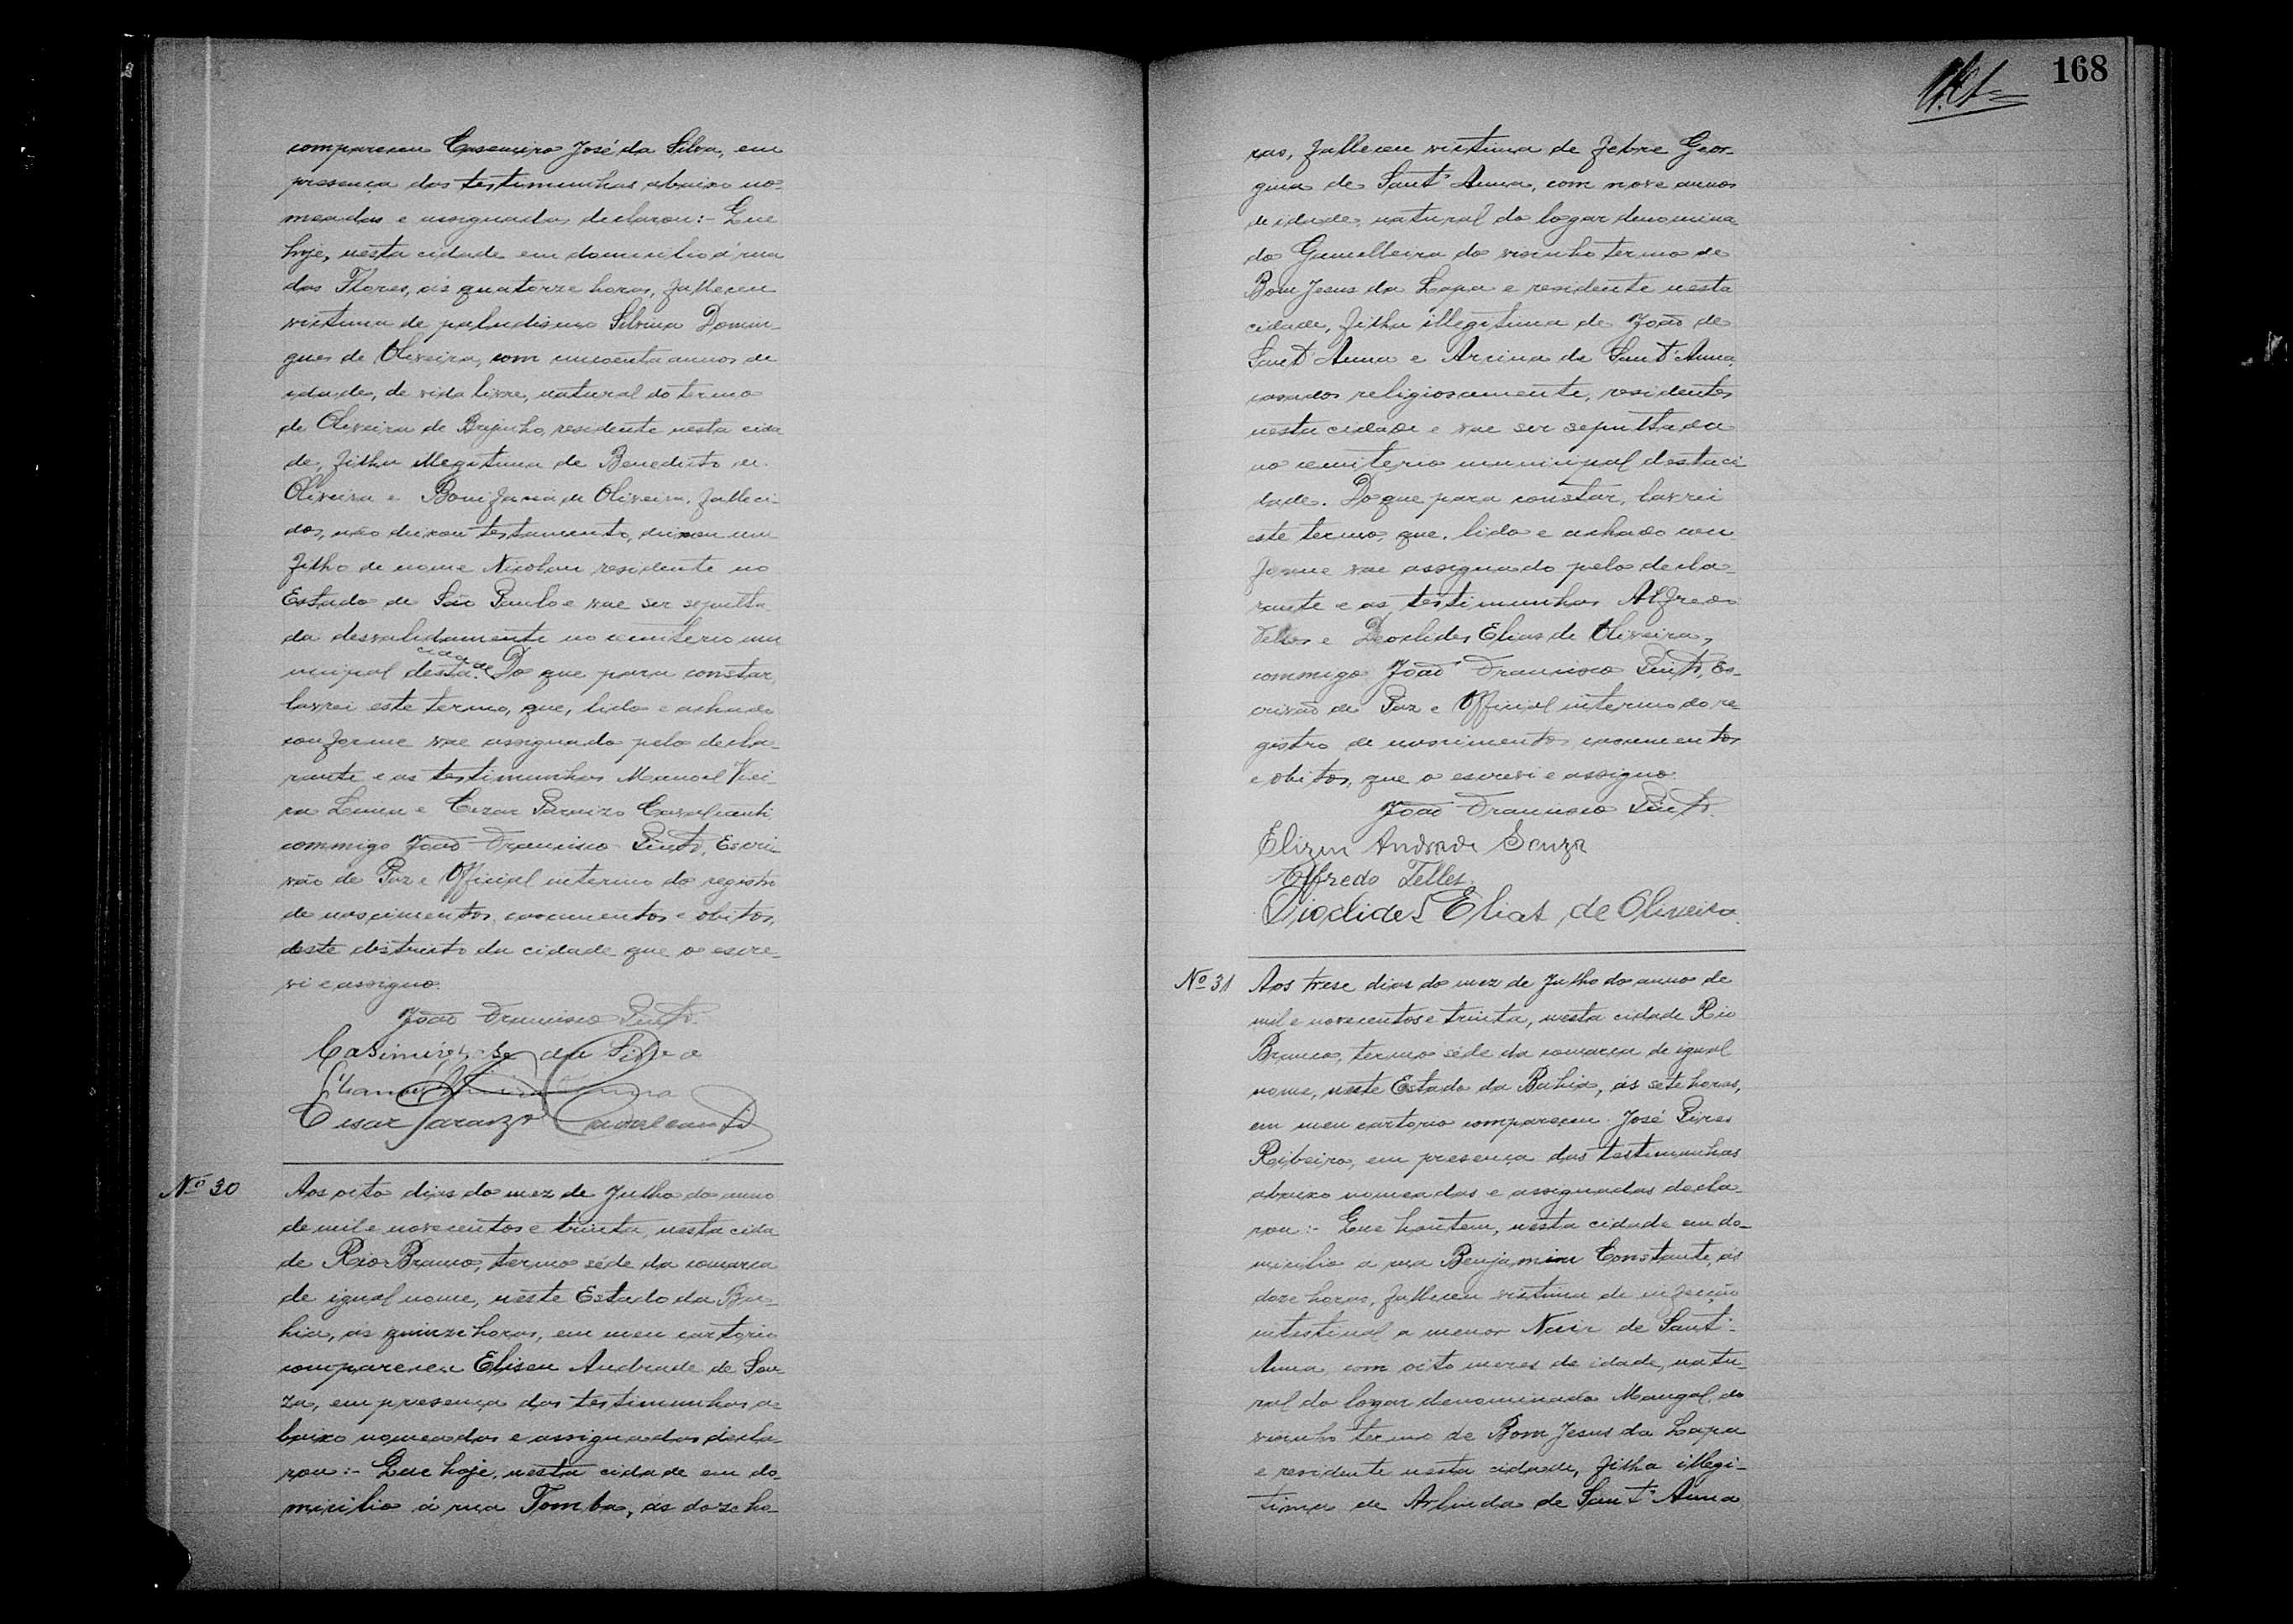 compareceu Casemiro José da Silva, em
presença das testimunhas abaixo no-
meadas e assignadas declarou:- Que
hoje, nesta cidade em domicilio á rua
das Flores, ás quatorze horas, falleceu
victima de paludismo Silvina Domin-
gues de Oliveira, com cincoenta annos de
idade, de vida livre, natural do termo
de Oliveira de Brejinho, residente nesta cida
de, filha illegitima de Benedicto de
Oliveira e Bonifacia de Oliveira, falleci-
dos, não deixou testamento, deixou um
filho de nome Nicolau residente no
Estado de São Paulo e vae ser sepulta-
da desvalidamente no cemiterio mu
nicipal desta cidade. Do que para constar,
lavrei este termo, que, lido e achado
conforme vae assignado pelo decla-
rante e as testimunhas Manoel Viei-
ra Lima e Cezar Paraizo Cavalcanti
commigo João Francisco Pinto, Escri
vão de Paz e Official interino do registro
de nascimentos, casamentos e obitos,
deste districto da cidade que o escre-
vi e assigno.
João Francisco Pinto.
Casimiro José da Silva
Cesar Paraizo Cavalcanti
Nº 30
Aos oito dias do mez de Julho do anno
de mil e novecentos e trinta, nesta cida
de Rio Branco, termo séde da comarca
de igual nome, neste Estado da Ba-
hia, ás quinze horas, em meu cartorio
compareceu Eliseu Andrade de Sou
za, em presença das testimunhas a-
baixo nomeadas e assignadas decla-
rou:- Que hoje, nesta cidade em do-
micilio á rua Tomba, ás doze ho-
168
ras, falleceu victima de febre Geor-
gina de Sant'Anna, com nove annos
de idade, natural do logar denomina
do Gamelleira do visinho termo de
Bom Jesus da Lapa e residente nesta
cidade, filha illegitima de João de
Sant'Anna e Arcina de Sant'Anna,
casados religiosamente, residentes
nesta cidade e vae ser sepultada
no cemiterio municipal desta ci
dade. Do que para constar, lavrei
este termo, que, lido e achado con
forme vae assignado pelo decla-
rante e as testimunhas Alfredo
Telles e Deoclides Elias de Oliveira,
commigo João Francisco Pinto, Es-
crivão de Paz e Official interino do re
gistro de nascimentos casamentos
e obitos, que o escrevi e assigno.
João Francisco Pinto.
Elizeu Andrade Souza
Alfredo Telles.
Dioclides Elias de Oliveira.
Nº 31
Aos trese dias do mez de Julho do anno de
mil e novecentos e trinta, nesta cidade Rio
Branco, termo séde da comarca de igual
nome, neste Estado da Bahia, ás sete horas,
em meu cartorio compareceu José Pires
Ribeiro, em presença das testimunhas
abaixo nomeadas e assignadas decla-
rou:- Que hontem, nesta cidade em do-
micilio a rua Benjamim Constante, ás
doze horas, falleceu victima de infecção
intestinal a menor Nair de Sant'-
Anna com oito mezes de idade, natu-
ral do logar denominado Mangal, do
visinho termo de Bom Jesus da Lapa
e residente nesta cidade, filha illegi-
tima de Arlinda de Sant'Anna